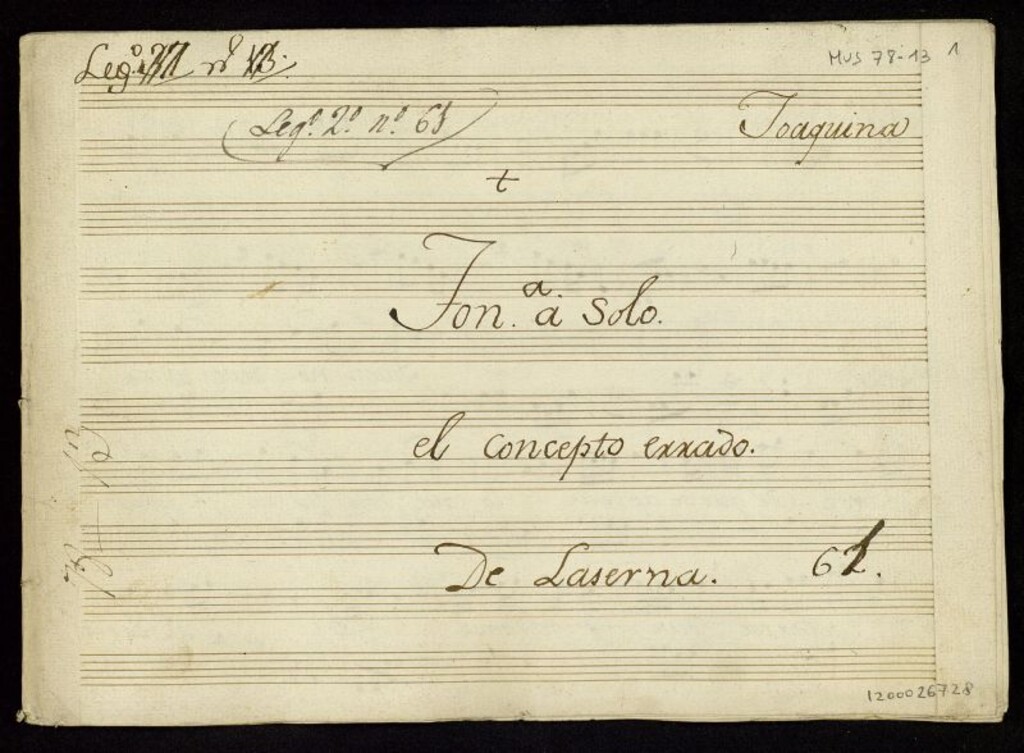 Leg.º nº 13.
MUS 78-13 1
Leg.º 2.º n.º 61
Joaquina
+
Ton.ª á Solo.
el concepto errado.
De Laserna. 61.
1200026728